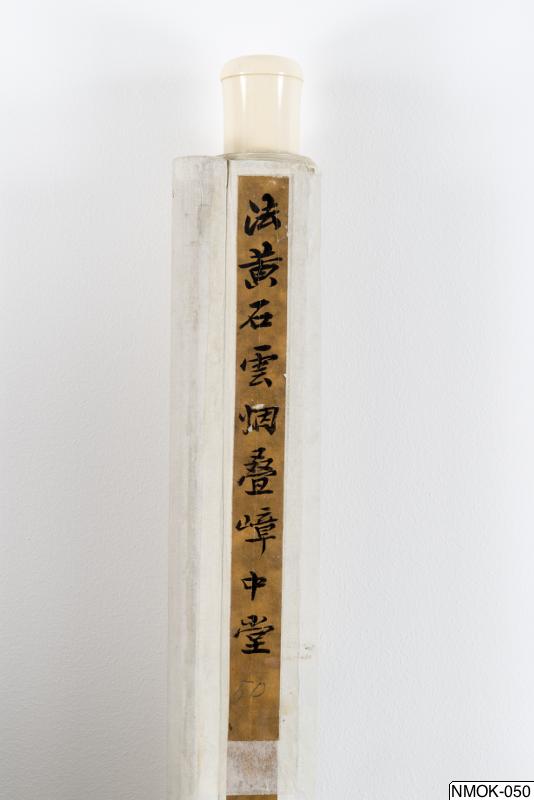 法黄石雲烟叠嶂中堂
50
NMOK-050